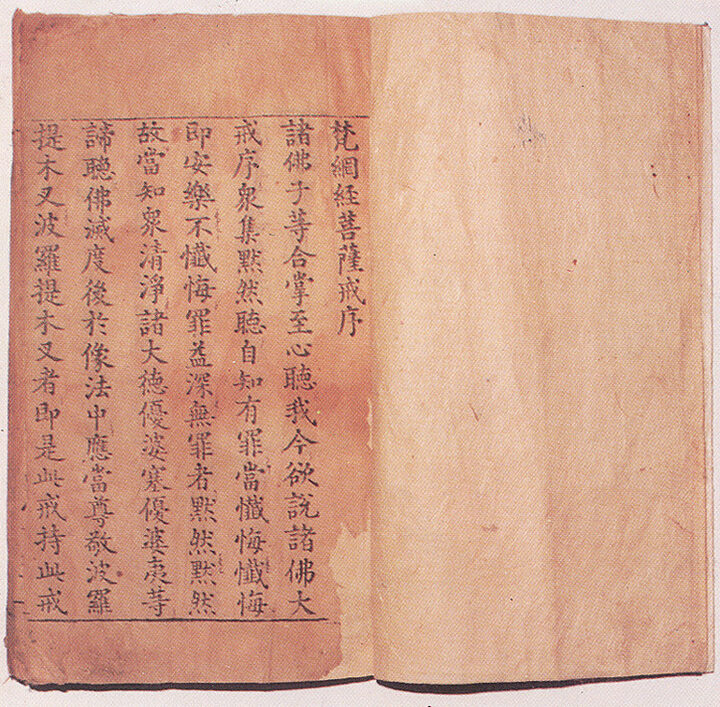 梵網経菩薩戒序
諸佛子䓁合掌至心聽我今欲説諸佛大
戒序衆集黙然聽自知有罪當懺悔懺悔
即安樂不懺悔罪益深無罪者黙然黙然
故當知衆清淨諸大德優婆塞優婆夷䓁
諦聽佛滅度後於像法中應當尊敬波羅
提木叉波羅提木叉者即是此戒持此戒